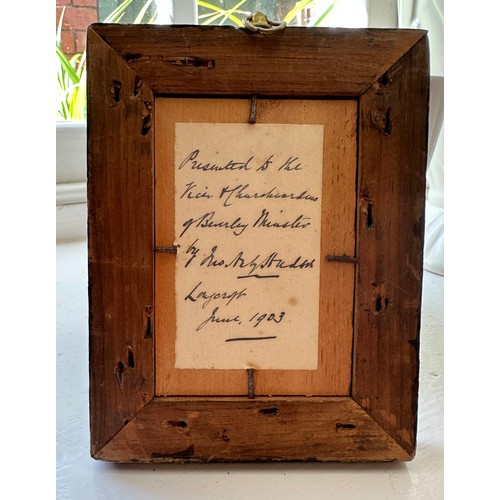 Presented to the
Vicar & Churchwardens
of Beverley Minster
by Jno. Hudson
June, 1903